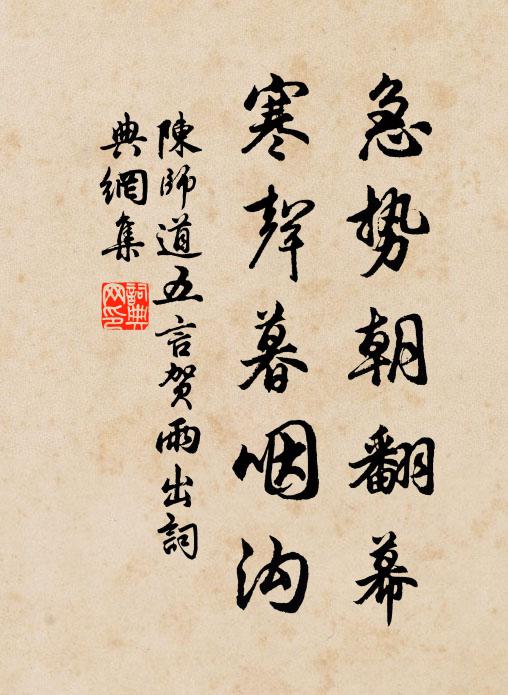 急势朝翻幕
寒聲暮咽沟
陳師道五言賀雨出詞
典網集
詞典网印